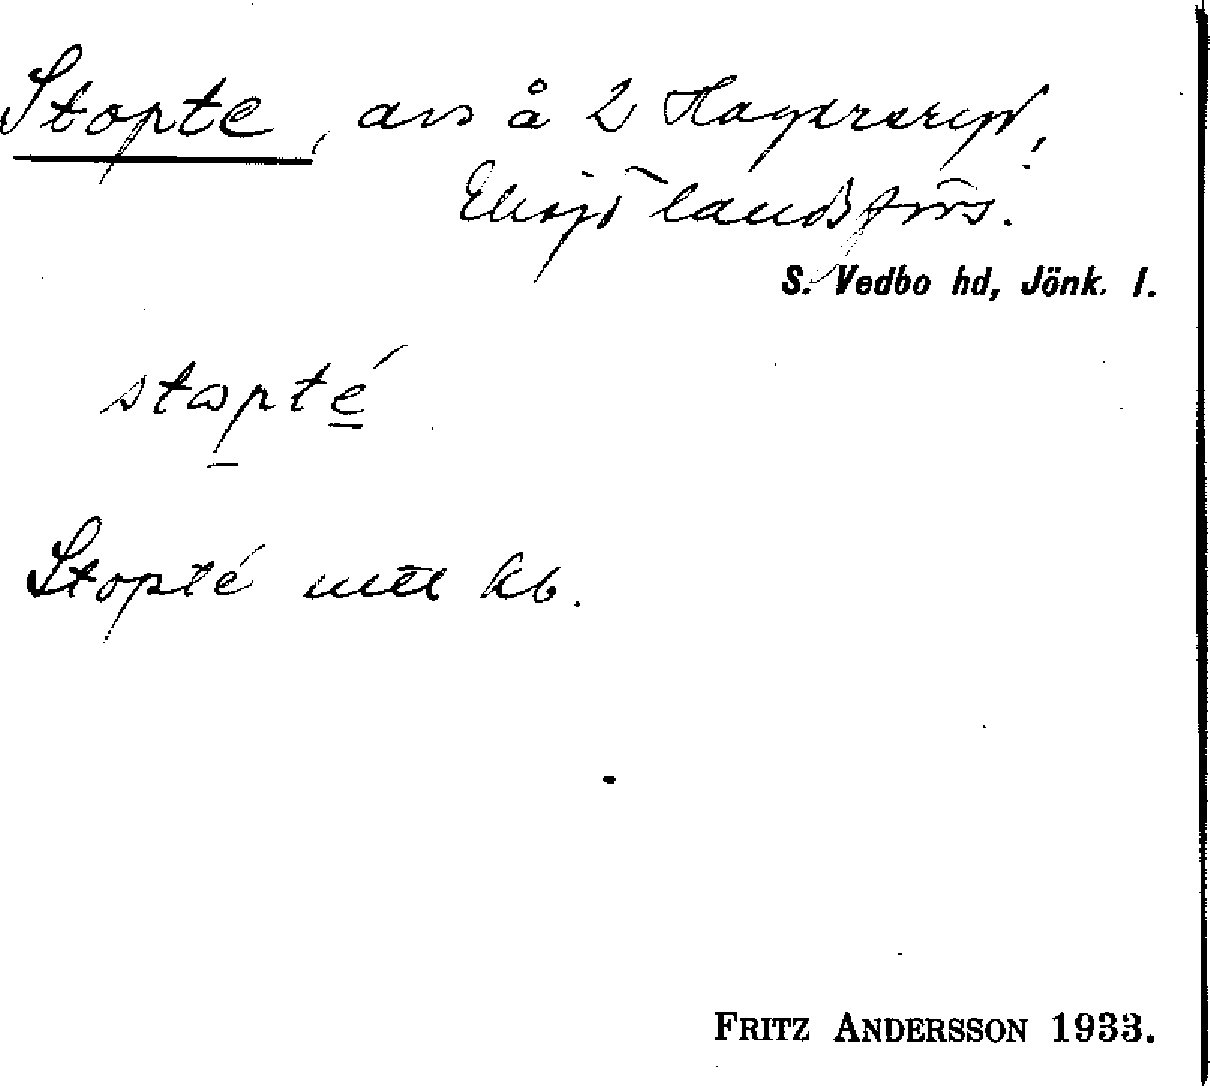 Stopte, avs å 2 Hagersryd,
Eksjö landsförs.
S. Vedbo hd, Jönk. l.
stopté
Stopté utt kb.
FRITZ ANDERSSON 1933.